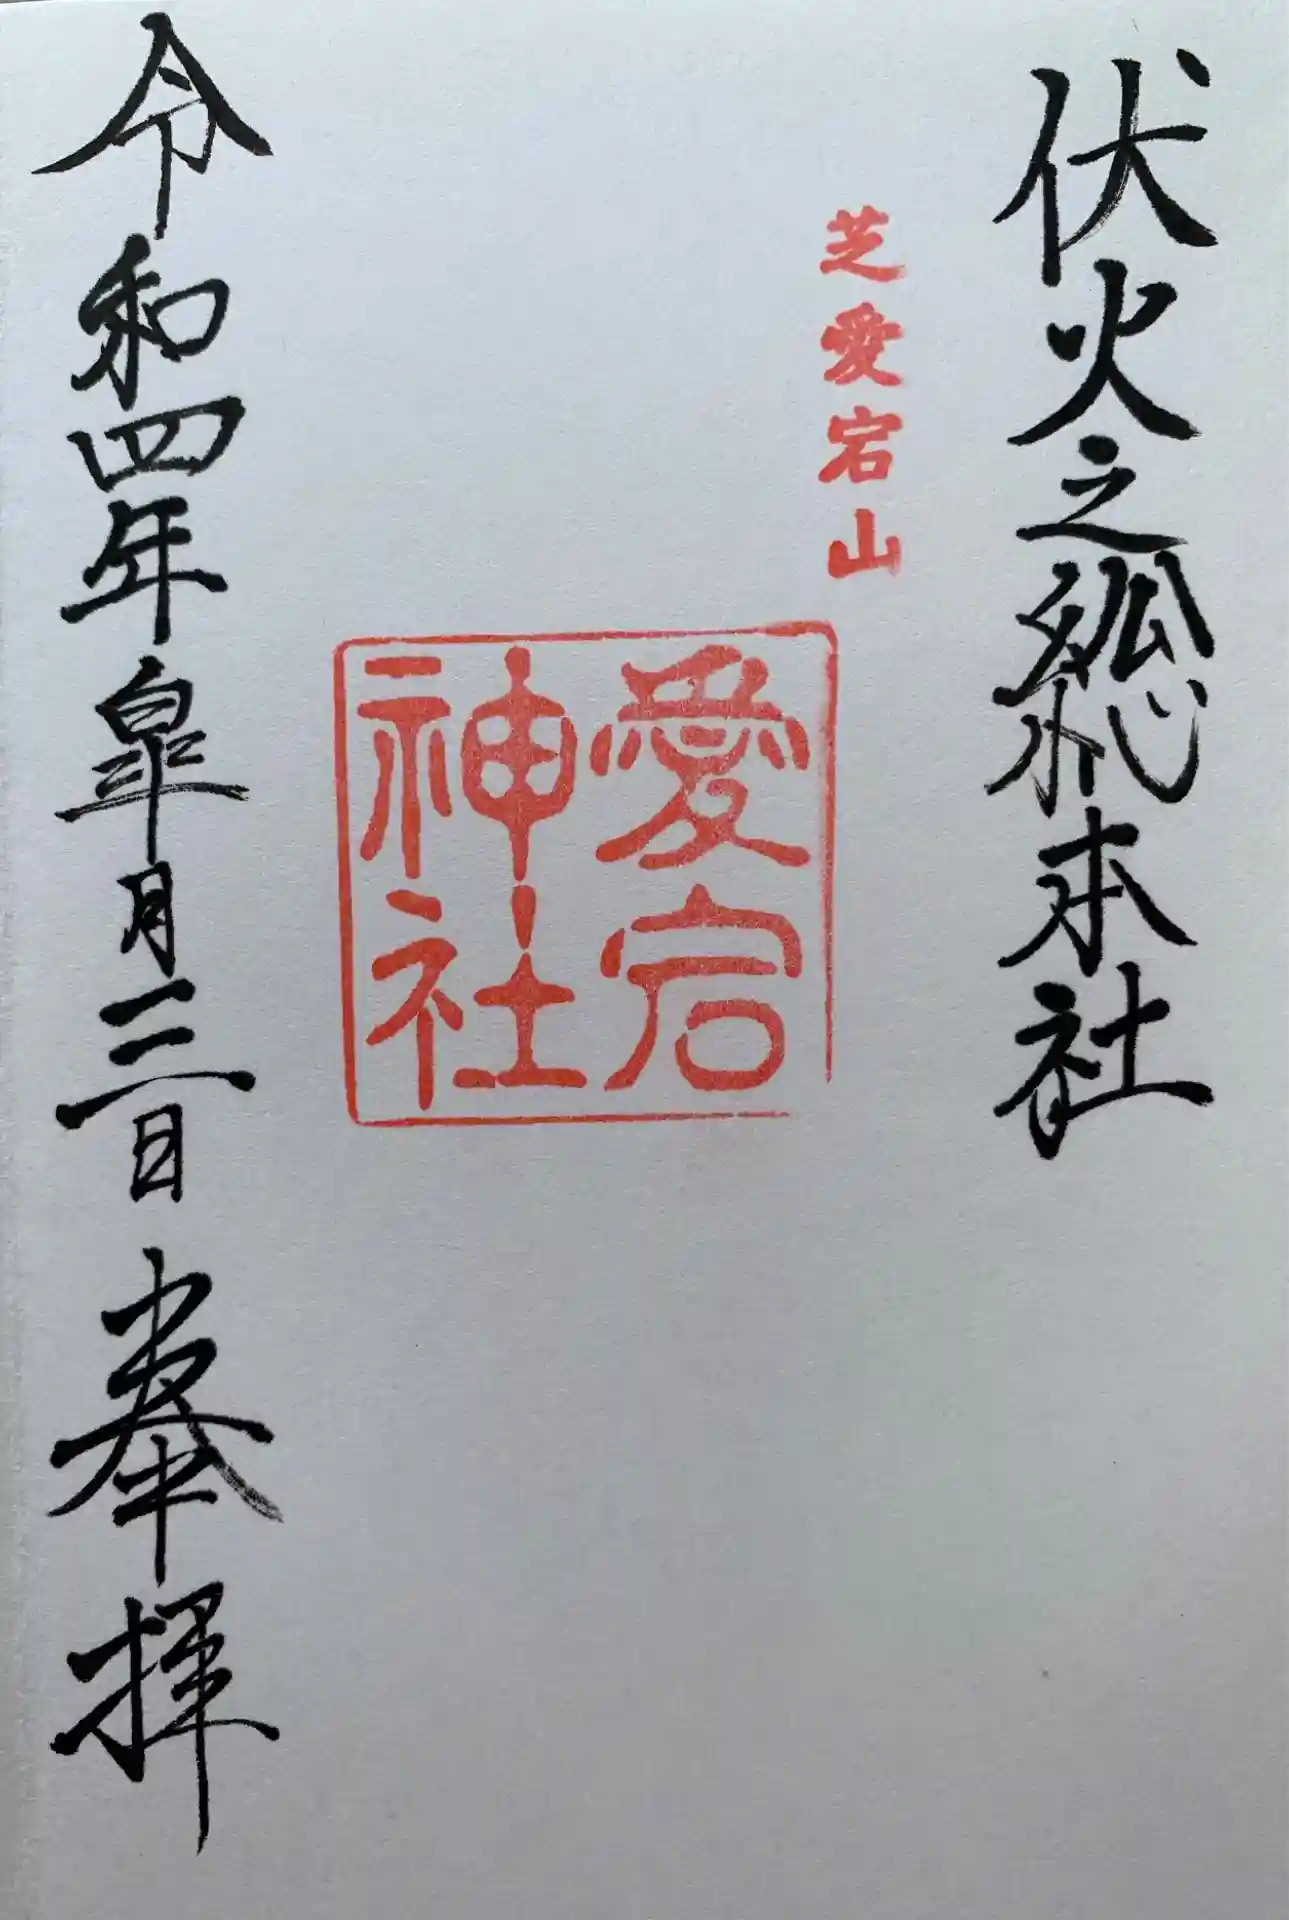 伏火之総本社
芝愛宕山
愛宕
神社
令和四年皐月三日 奉拝